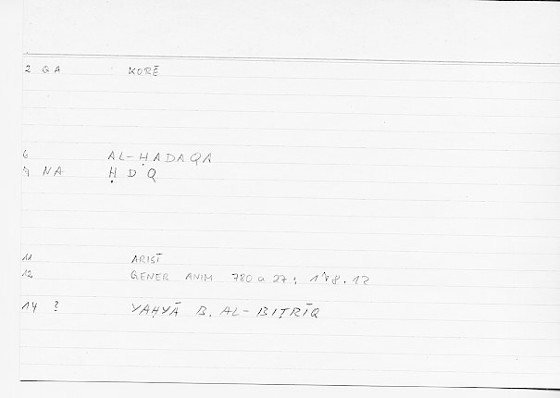 2 GA KORĒ
6 AL-ḤADAQA
7 NA ḤDQ
11 ARIST
12 GENER ANIM 780 a 27; 178.12
14 ? YAḤYĀ B. AL-BIṬRĪQ